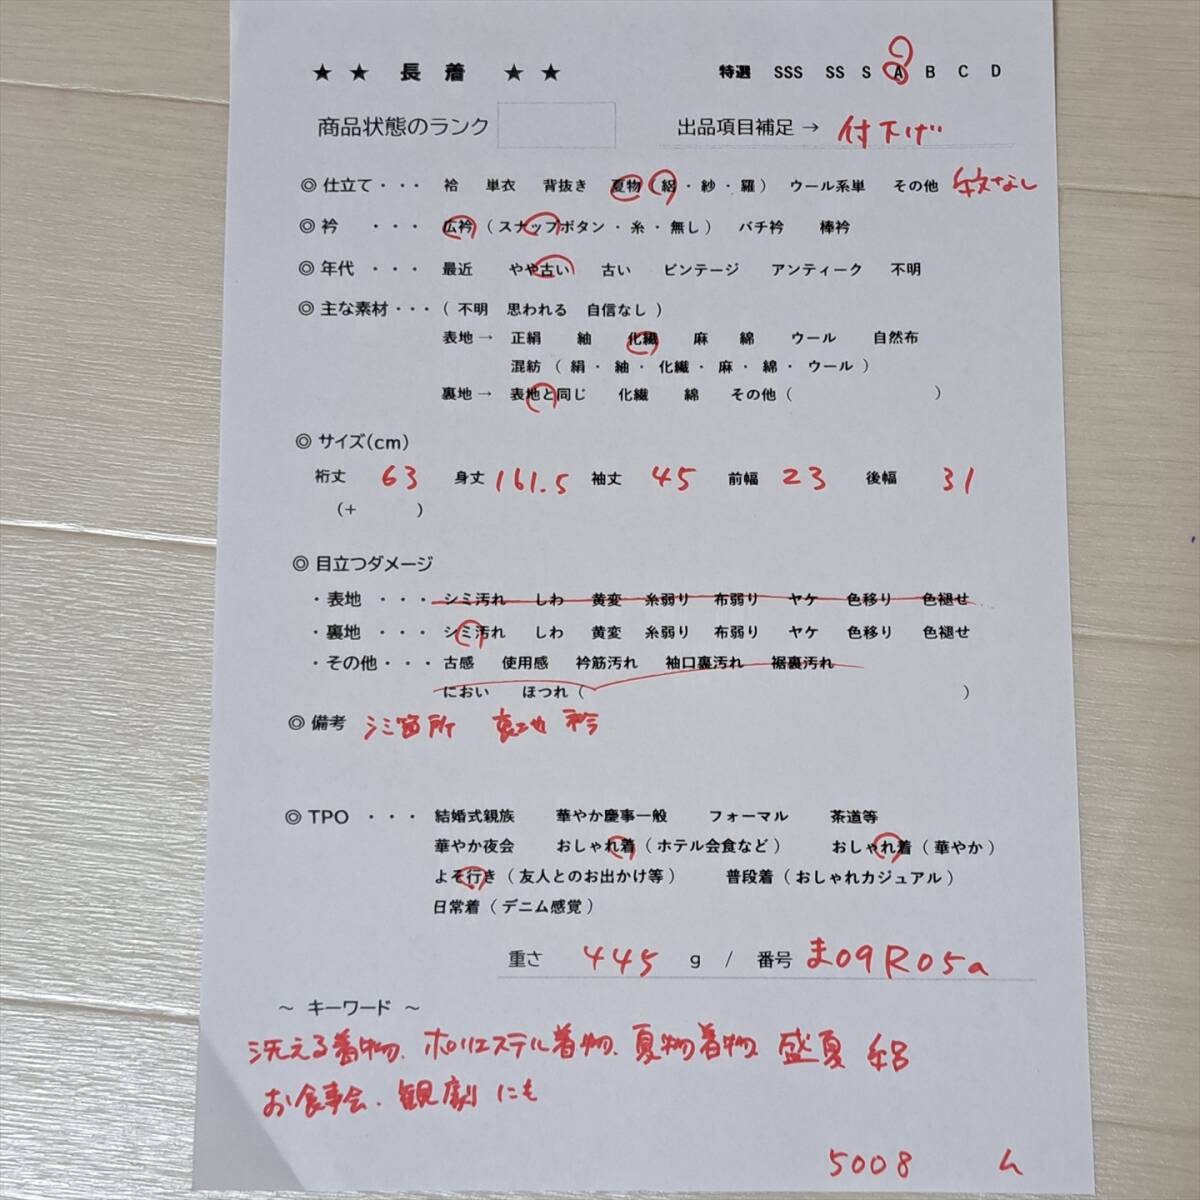 ★ ★ 長 着 ★ ★ 特選 SSS SS S A B C D
商品状態のランク 出品項目補足 → 付下げ
◎ 仕立て ・・・ 袷 単衣 背抜き 夏物 ( 絽 ・ 紗 ・ 羅 ) ウール系単 その他 紋なし
◎ 衿 ・・・ 広衿 ( スナップボタン ・ 糸 ・ 無し ) バチ衿 棒衿
◎ 年代 ・・・ 最近 やや古い 古い ビンテージ アンティーク 不明
◎ 主な素材 ・・・ ( 不明 思われる 自信なし )
表地 → 正絹 紬 化繊 麻 綿 ウール 自然布
混紡 ( 絹 ・ 紬 ・ 化繊 ・ 麻 ・ 綿 ・ ウール )
裏地 → 表地と同じ 化繊 綿 その他 ( )
◎ サイズ(cm)
裄丈 63 身丈 161.5 袖丈 45 前幅 23 後幅 31
(+ )
◎ 目立つダメージ
・ 表地 ・・・ シミ汚れ しわ 黄変 糸弱り 布弱り ヤケ 色移り 色褪せ
・ 裏地 ・・・ シミ汚れ しわ 黄変 糸弱り 布弱り ヤケ 色移り 色褪せ
・ その他 ・・・ 古感 使用感 衿筋汚れ 袖口裏汚れ 裾裏汚れ
におい ほつれ ( )
◎ 備考 シミ箇所 裏地 衿
◎ TPO ・・・ 結婚式親族 華やか慶事一般 フォーマル 茶道等
華やか夜会 おしゃれ着 ( ホテル会食など ) おしゃれ着 ( 華やか )
よそ行き ( 友人とのお出かけ等 ) 普段着 ( おしゃれカジュアル )
日常着 ( デニム感覚 )
重さ 445 g / 番号 ま09R05a
～ キーワード ～
洗える着物、ポリエステル着物、夏物着物 盛夏 絽
お食事会、観劇にも
5008 ム